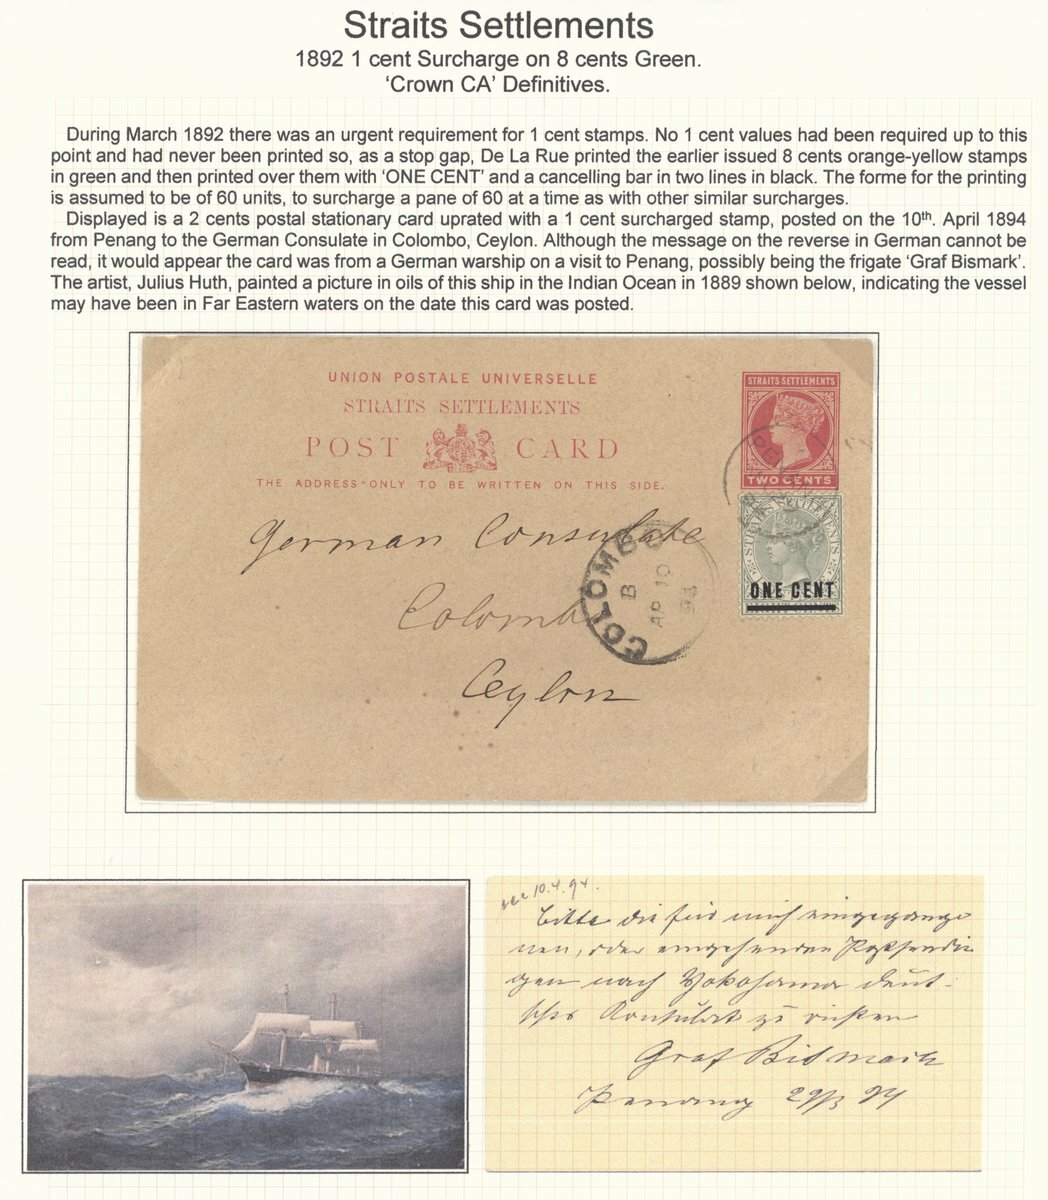 Straits Settlements
1892 1 cent Surcharge on 8 cents Green.
‘Crown CA’ Definitives.
During March 1892 there was an urgent requirement for 1 cent stamps. No 1 cent values had been required up to this
point and had never been printed so, as a stop gap, De La Rue printed the earlier issued 8 cents orange-yellow stamps
in green and then printed over them with ‘ONE CENT’ and a cancelling bar in two lines in black. The forme for the printing
is assumed to be of 60 units, to surcharge a pane of 60 at a time as with other similar surcharges.
Displayed is a 2 cents postal stationary card uprated with a 1 cent surcharged stamp, posted on the 10th. April 1894
from Penang to the German Consulate in Colombo, Ceylon. Although the message on the reverse in German cannot be
read, it would appear the card was from a German warship on a visit to Penang, possibly being the frigate ‘Graf Bismark’.
The artist, Julius Huth, painted a picture in oils of this ship in the Indian Ocean in 1889 shown below, indicating the vessel
may have been in Far Eastern waters on the date this card was posted.
UNION POSTALE UNIVERSELLE
STRAITS SETTLEMENTS
POST CARD
THE ADDRESS ONLY TO BE WRITTEN ON THIS SIDE.
STRAITS SETTLEMENTS
TWO CENTS
STRAITS SETTLEMENTS
ONE CENT
German Consulate
Colombo
Ceylon
COLOMBO
B
AP 10
94
10.4.94.
Bitte die für mich eingegange
nen, oder eingehenden Postsendun
gen nach Yokohama deut-
sches Konsulat zu
Graf Bismarck
Penang 29/3 94